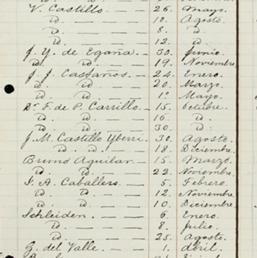 V. Castillo. — 26. Mayo.
d. — 10. Agosto.
d. — 8. d.
d. — 12. d.
J. Y. de Egaña — 30. Junio.
d. d. — 19. Noviembre
J. J. Castaños. — 24. Enero.
d. d. — 20. Marzo.
d. d. — 1º Mayo.
Dr. F. de P. Carrillo. — 15. Octubre.
d. d. — 16. d.
d. d. — 30. d.
J. M. Castillo — 30. Agosto.
d. d. d. — 18. Diciembre.
Bruno Aguilar — 15. Marzo.
d. d. — 22. Noviembre.
F. A. Caballero. — 5. Febrero
d. d. — 12. Noviembre
d. d. — 10. Diciembre.
Schleiden. — 6. Enero.
d. — 8. Julio.
d. — 25. Agosto.
G. del Valle. — 1. Abril.